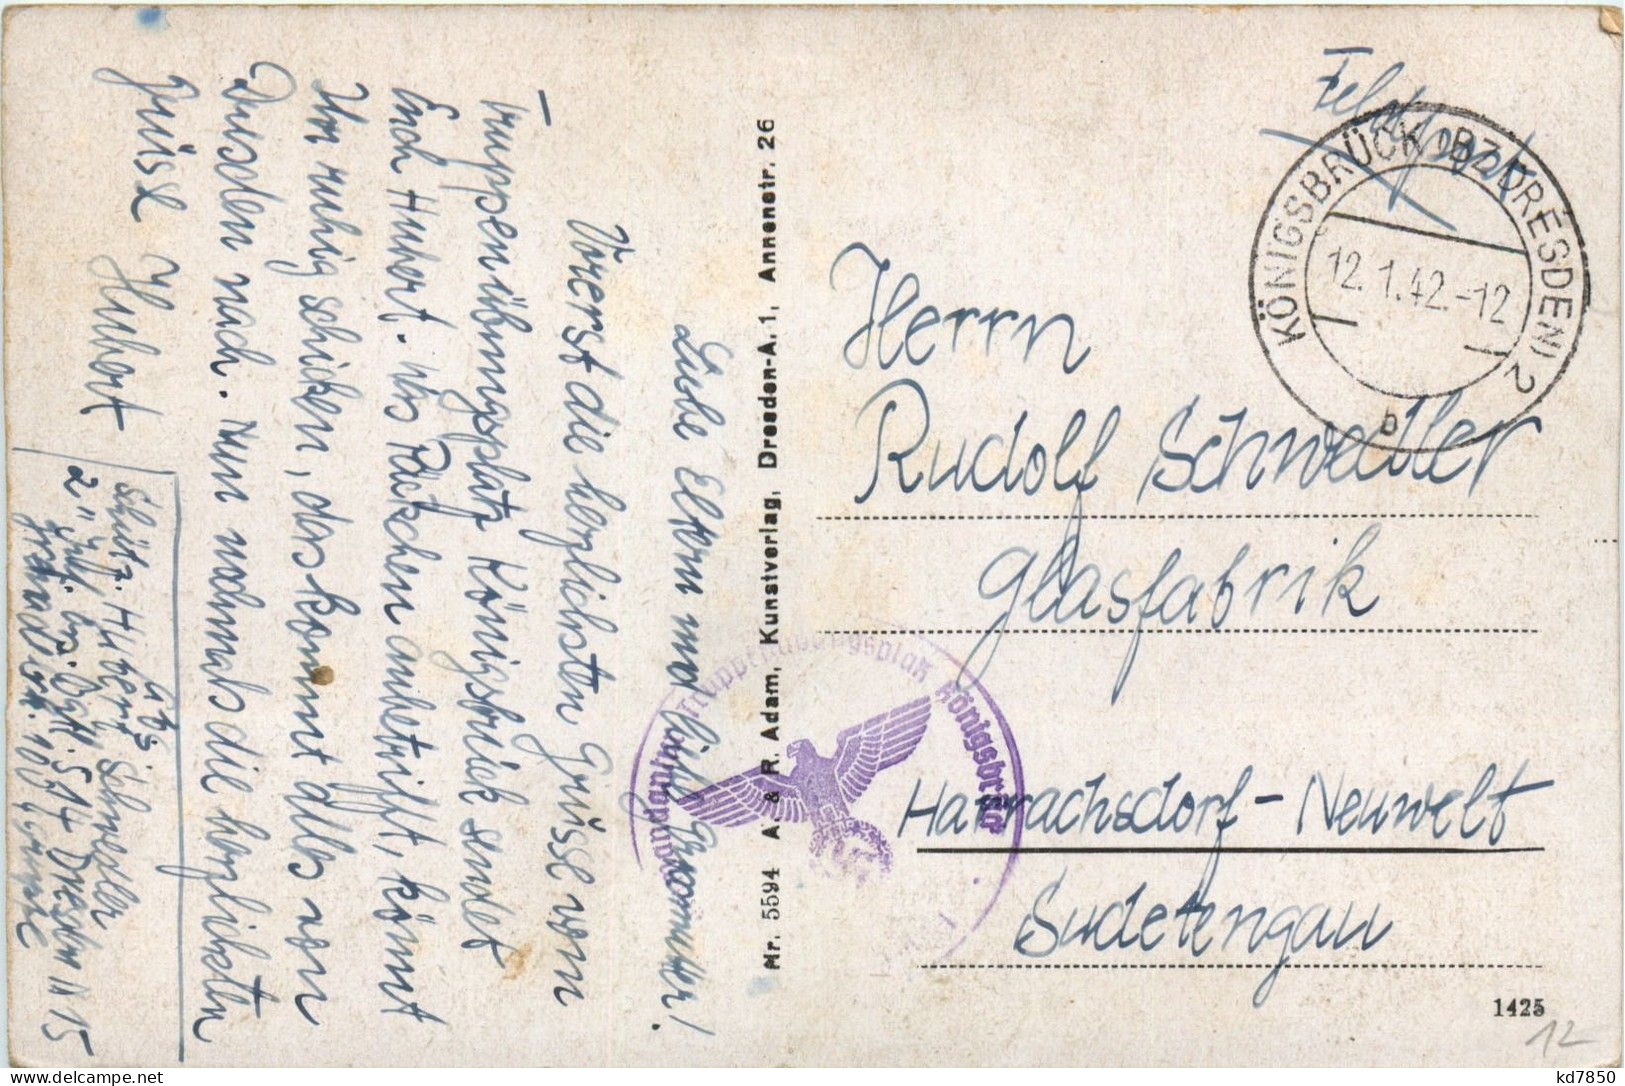 Feldpost
KÖNIGSBRÜCK (BZ. DRESDEN) 2
12.1.42.-12
b
Herrn
Rudolf Schwedler
Glasfabrik
Harrachsdorf - Neuwelt
Sudetengau
1425
12
Truppenübungsplatz Königsbrück
Nr. 5594 A. & R. Adam, Kunstverlag, Dresden-A. 1, Annenstr. 26
Liebe Eltern und liebe Grossmutter!
Vorerst die herzlichsten Grüsse vom
Truppenübungsplatz Königsbrück sendet
Euch Hubert. Was Päckchen anbetrifft, könnt
Ihr ruhig schicken, das kommt alles von
Dresden nach. Nun nochmals die herzlichsten
Grüsse Hubert
Schütz. Hubert Schwedler
Dresden N 15
kd7850